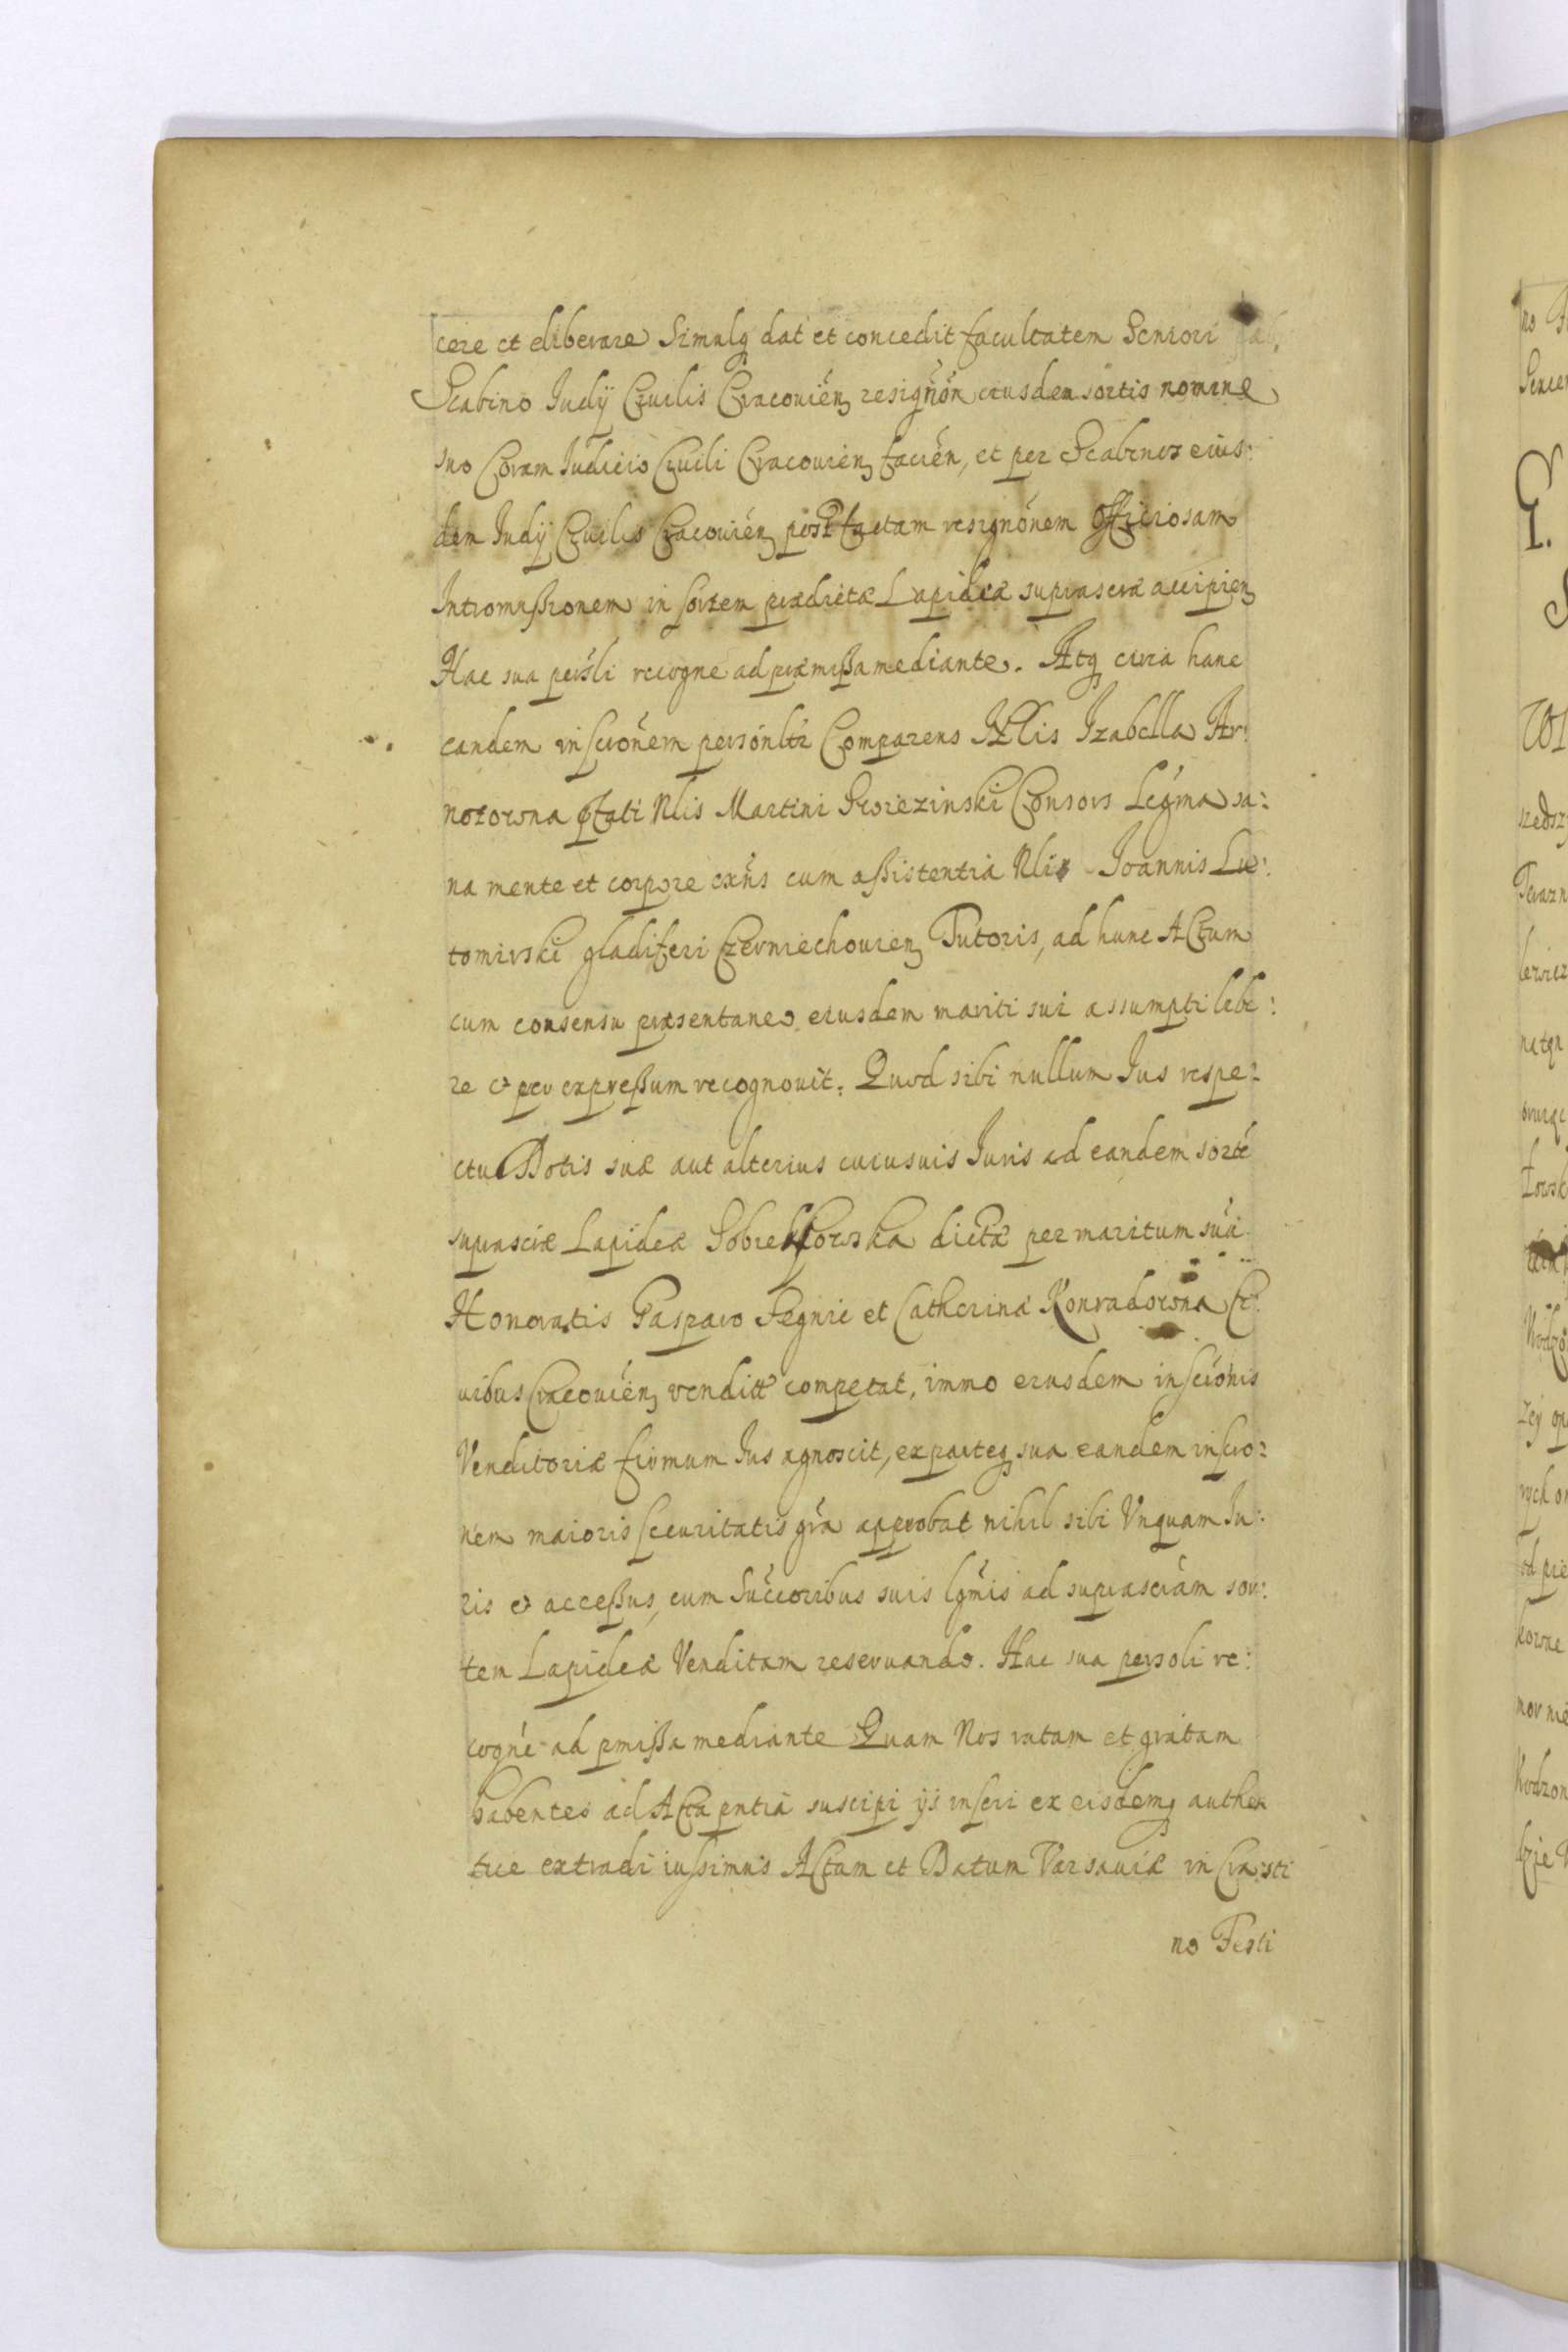 cere et eliberare Simulq dat et concedit facultatem Seniori
Scabino Judÿ Civilis Cracovień resignón eiusdem sortis nomine
suo Coram Judicio Civili Cracovień facień, et per Scabinos eius:
dem Judÿ Civilis Cracovień post factam resignónem Officiosam
Intromißionem in sortem prædictæ Lapideæ suprascræ accipień
Hac sua persli recogne ad præmißa mediante. Atq circa hanc
eandem inscrónem personltr Comparens Izabella Ar:
notowna pfati Nlis Martini Consors Legma sa:
na mente et corpore exns cum aßistentia Nlis Joannis Lu:
tomirski gladiferi Czerniechovień Tutoris, ad hunc Actum
cum consensu præsentaneo eiusdem mariti sui assumpti libe:
re & per expreßum recognovit. Quod sibi nullum Jus respe:
ctu Dotis suæ aut alterius cuiusuis Juris ad eandem sorté
suprascræ Lapideæ dictæ per maritum suú
Honoratis Gasparo Fegnic et Catherinæ Konradowna Ci:
uibus Cracovień vendit competat, immo eiusdem inscrónis
Venditoriæ firmum Jus agnoscit, ex parteq sua eandem inscro:
nem maioris securitatis gra approbat nihil sibi Vnquam Ju:
ris & acceßus, cum Succoribus suis lgmis ad suprascram sor:
tem Lapideæ Venditam reservando. Hac sua persoli re:
cogne ad pmißa mediante Quam Nos ratam et gratam
habentes ad Acta pntia suscipi ijs inscri ex eisdemq authen
tice extradi iußimus Actum et Datum Varsaviæ in Crasti
no Festi